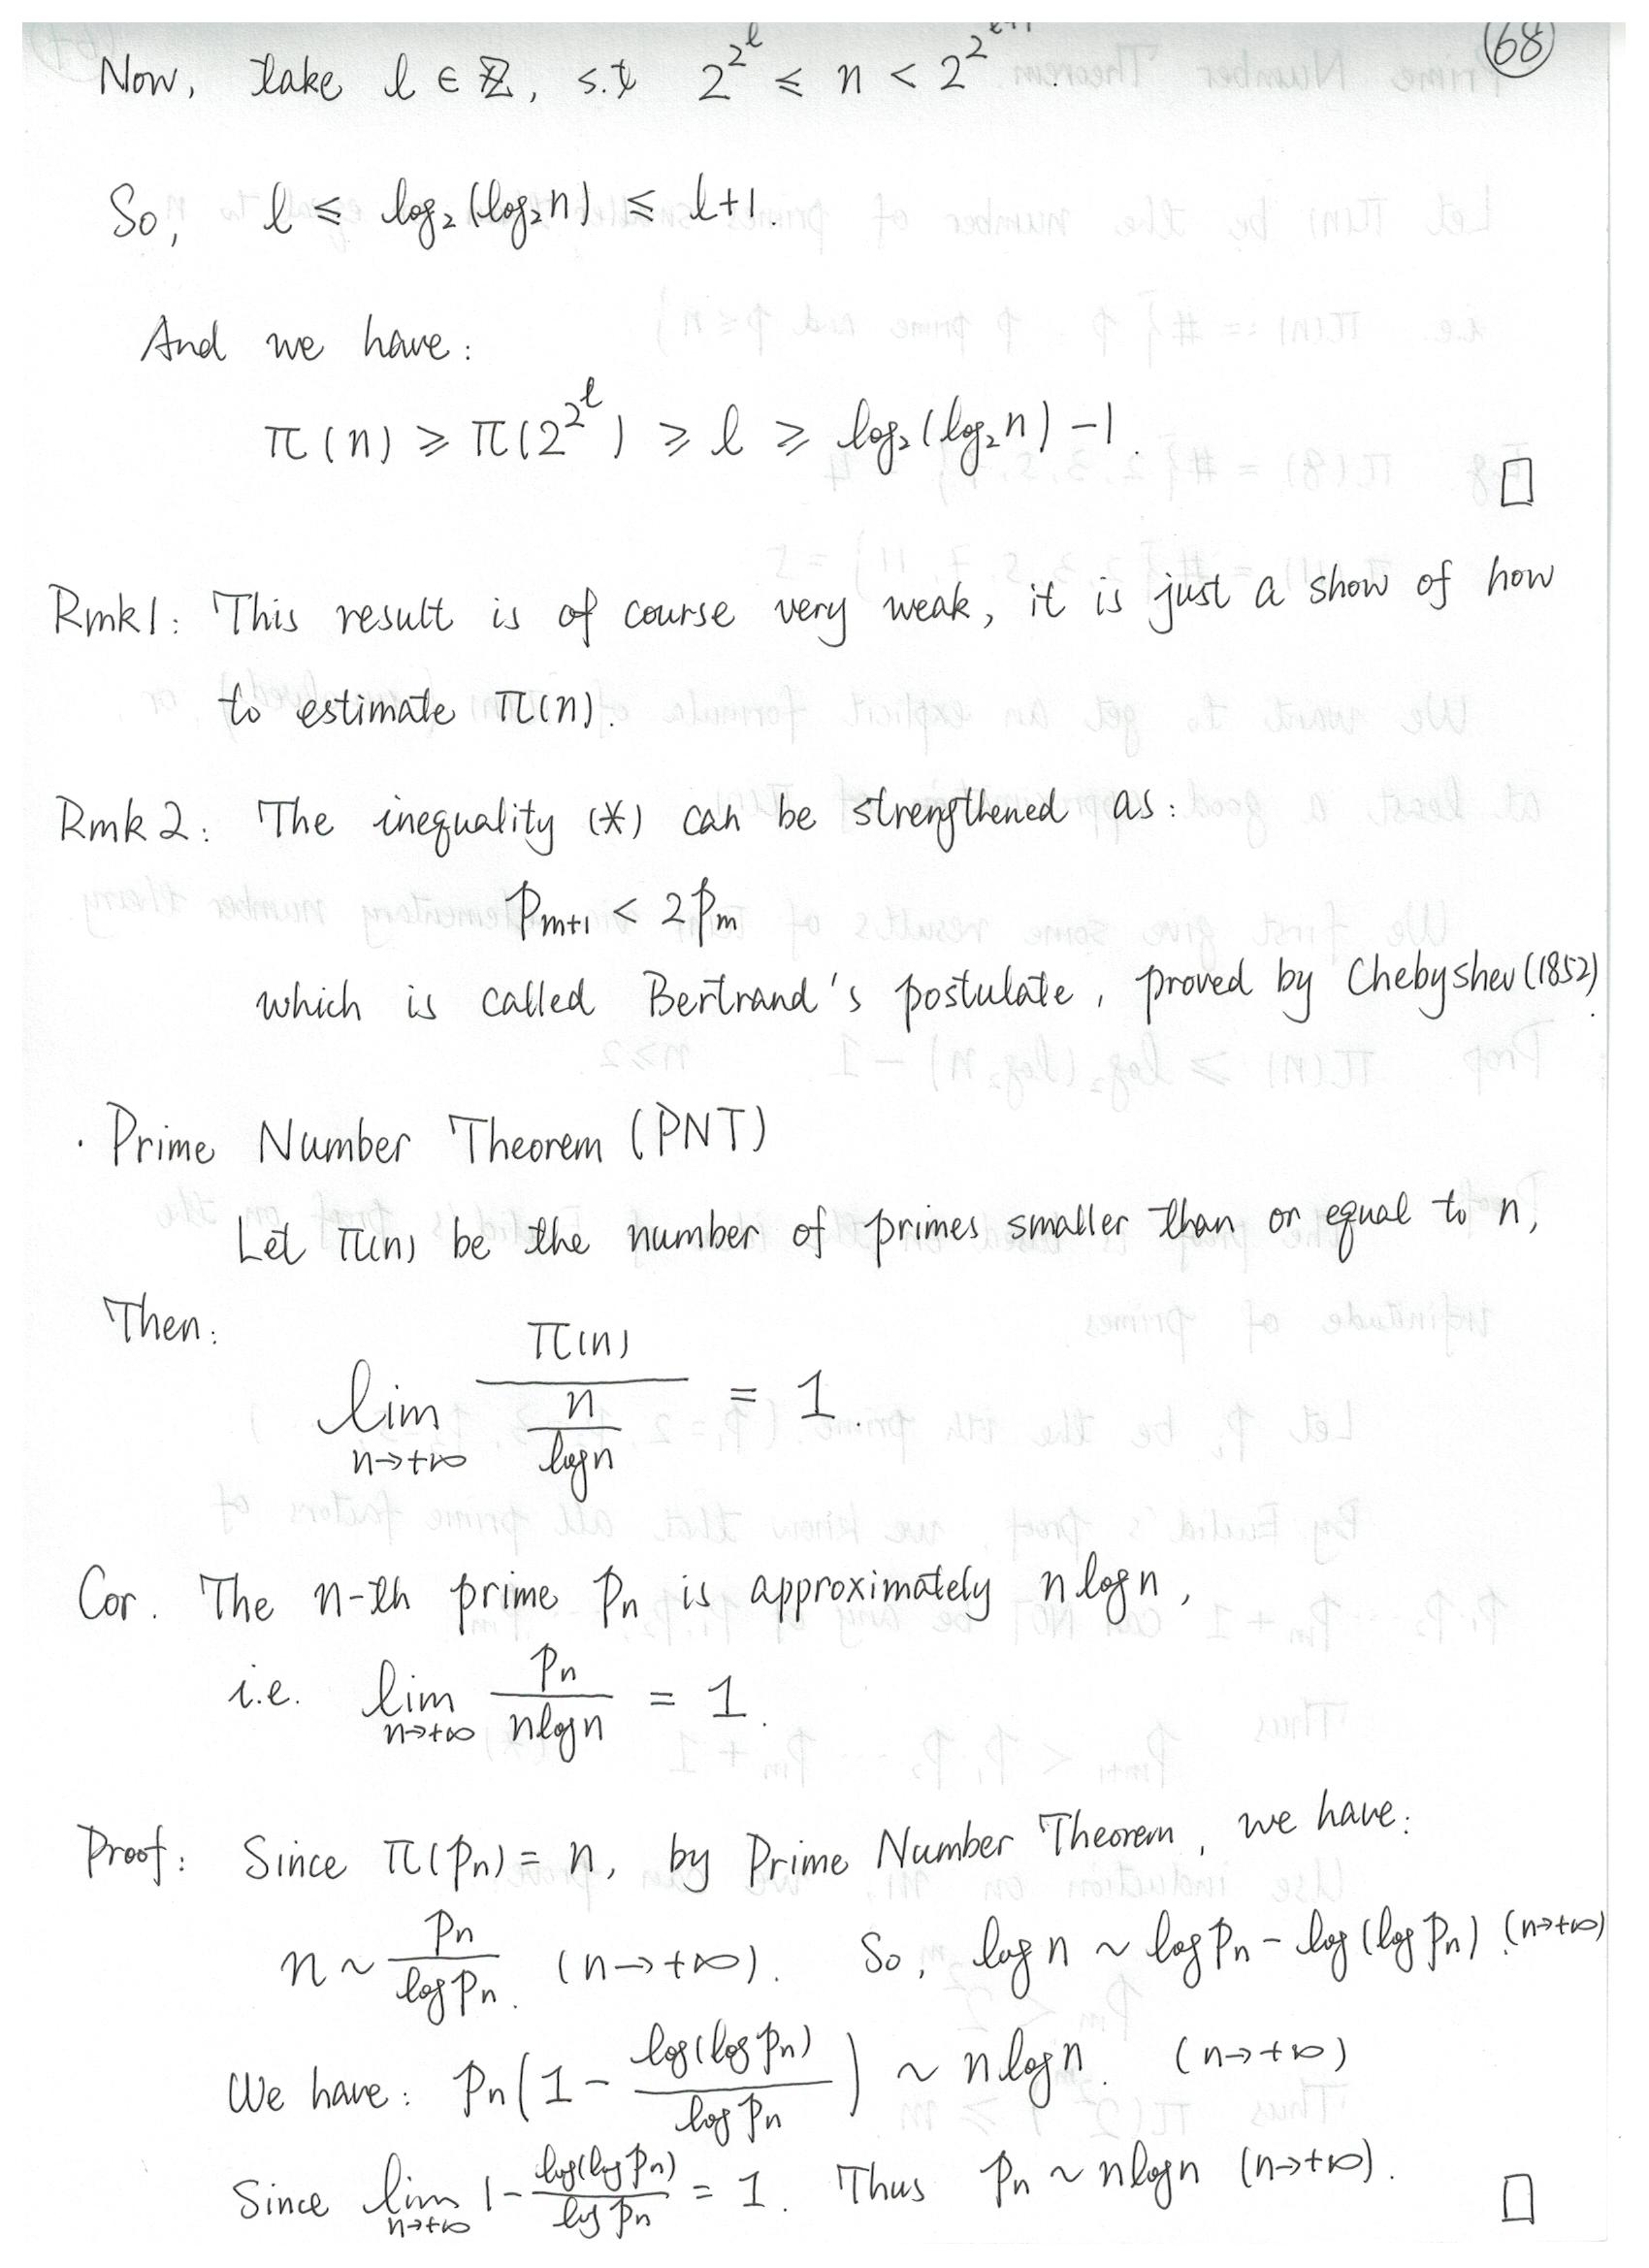 68
Now, take l ∈ ℤ, s.t 2^{2^l} ≤ n < 2^{2^{l+1}}.
So, l ≤ log₂(log₂n) ≤ l+1.
And we have:
π(n) ≥ π(2^{2^l}) ≥ l ≥ log₂(log₂n) -1.
□
Rmk1: This result is of course very weak, it is just a show of how
to estimate π(n).
Rmk2: The inequality (*) can be strengthened as:
p_{m+1} < 2p_m
which is called Bertrand's postulate, proved by Chebyshev (1852).
· Prime Number Theorem (PNT)
Let π(n) be the number of primes smaller than or equal to n,
Then:
lim_{n→+∞} π(n) / (n / log n) = 1.
Cor. The n-th prime p_n is approximately n log n,
i.e. lim_{n→+∞} p_n / (n log n) = 1.
Proof: Since π(p_n) = n, by Prime Number Theorem, we have:
n ~ p_n / log p_n. (n→+∞). So, log n ~ log p_n - log(log p_n). (n→+∞)
We have: p_n(1 - log(log p_n) / log p_n) ~ n log n. (n→+∞)
Since lim_{n→+∞} 1 - log(log p_n) / log p_n = 1. Thus p_n ~ n log n (n→+∞).
□